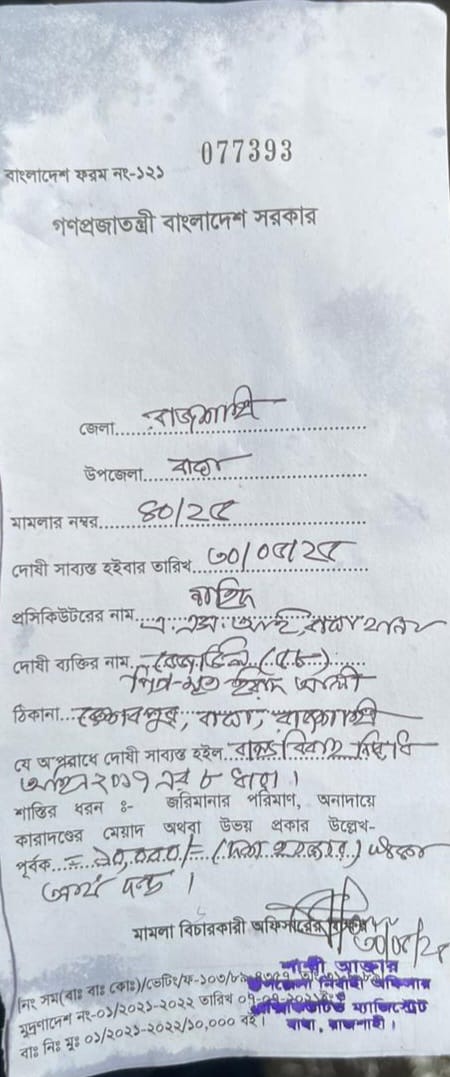 077393
বাংলাদেশ ফরম নং-১২১
গণপ্রজাতন্ত্রী বাংলাদেশ সরকার
জেলা..... রাজশাহী
উপজেলা..... বাঘা
মামলার নম্বর..... ৪০/২৫
দোষী সাব্যস্ত হইবার তারিখ..... ৩০/০৫/২৫
জাহিদ
প্রসিকিউটরের নাম..... এ, এস, আই, বাঘা থানা
দোষী ব্যক্তির নাম..... (৫৮)
পিতা-মৃত আলী
ঠিকানা..... কেশবপুর, বাঘা, রাজশাহী
যে অপরাধে দোষী সাব্যস্ত হইল. বাল্য বিবাহ নিরোধ
আইন ২০১৭ এর ৮ ধারা।
শাস্তির ধরন ঃ- জরিমানার পরিমাণ, অনাদায়ে
কারাদণ্ডের মেয়াদ অথবা উভয় প্রকার উল্লেখ-
পূর্বক = ১০,০০০/= (দশ হাজার) টাকা
অর্থ দন্ড।
মামলা বিচারকারী অফিসারের
৩০/০৫/২৫
আক্তার
উপজেলা নির্বাহী অফিসার
এক্সিকিউটিভ ম্যাজিস্ট্রেট
বাঘা, রাজশাহী।
মুদ্রণাদেশ নং-০১/২০২১-২০২২ তারিখ
বাঃ নিঃ মুঃ ০১/২০২১-২০২২/১০,০০০ বই।